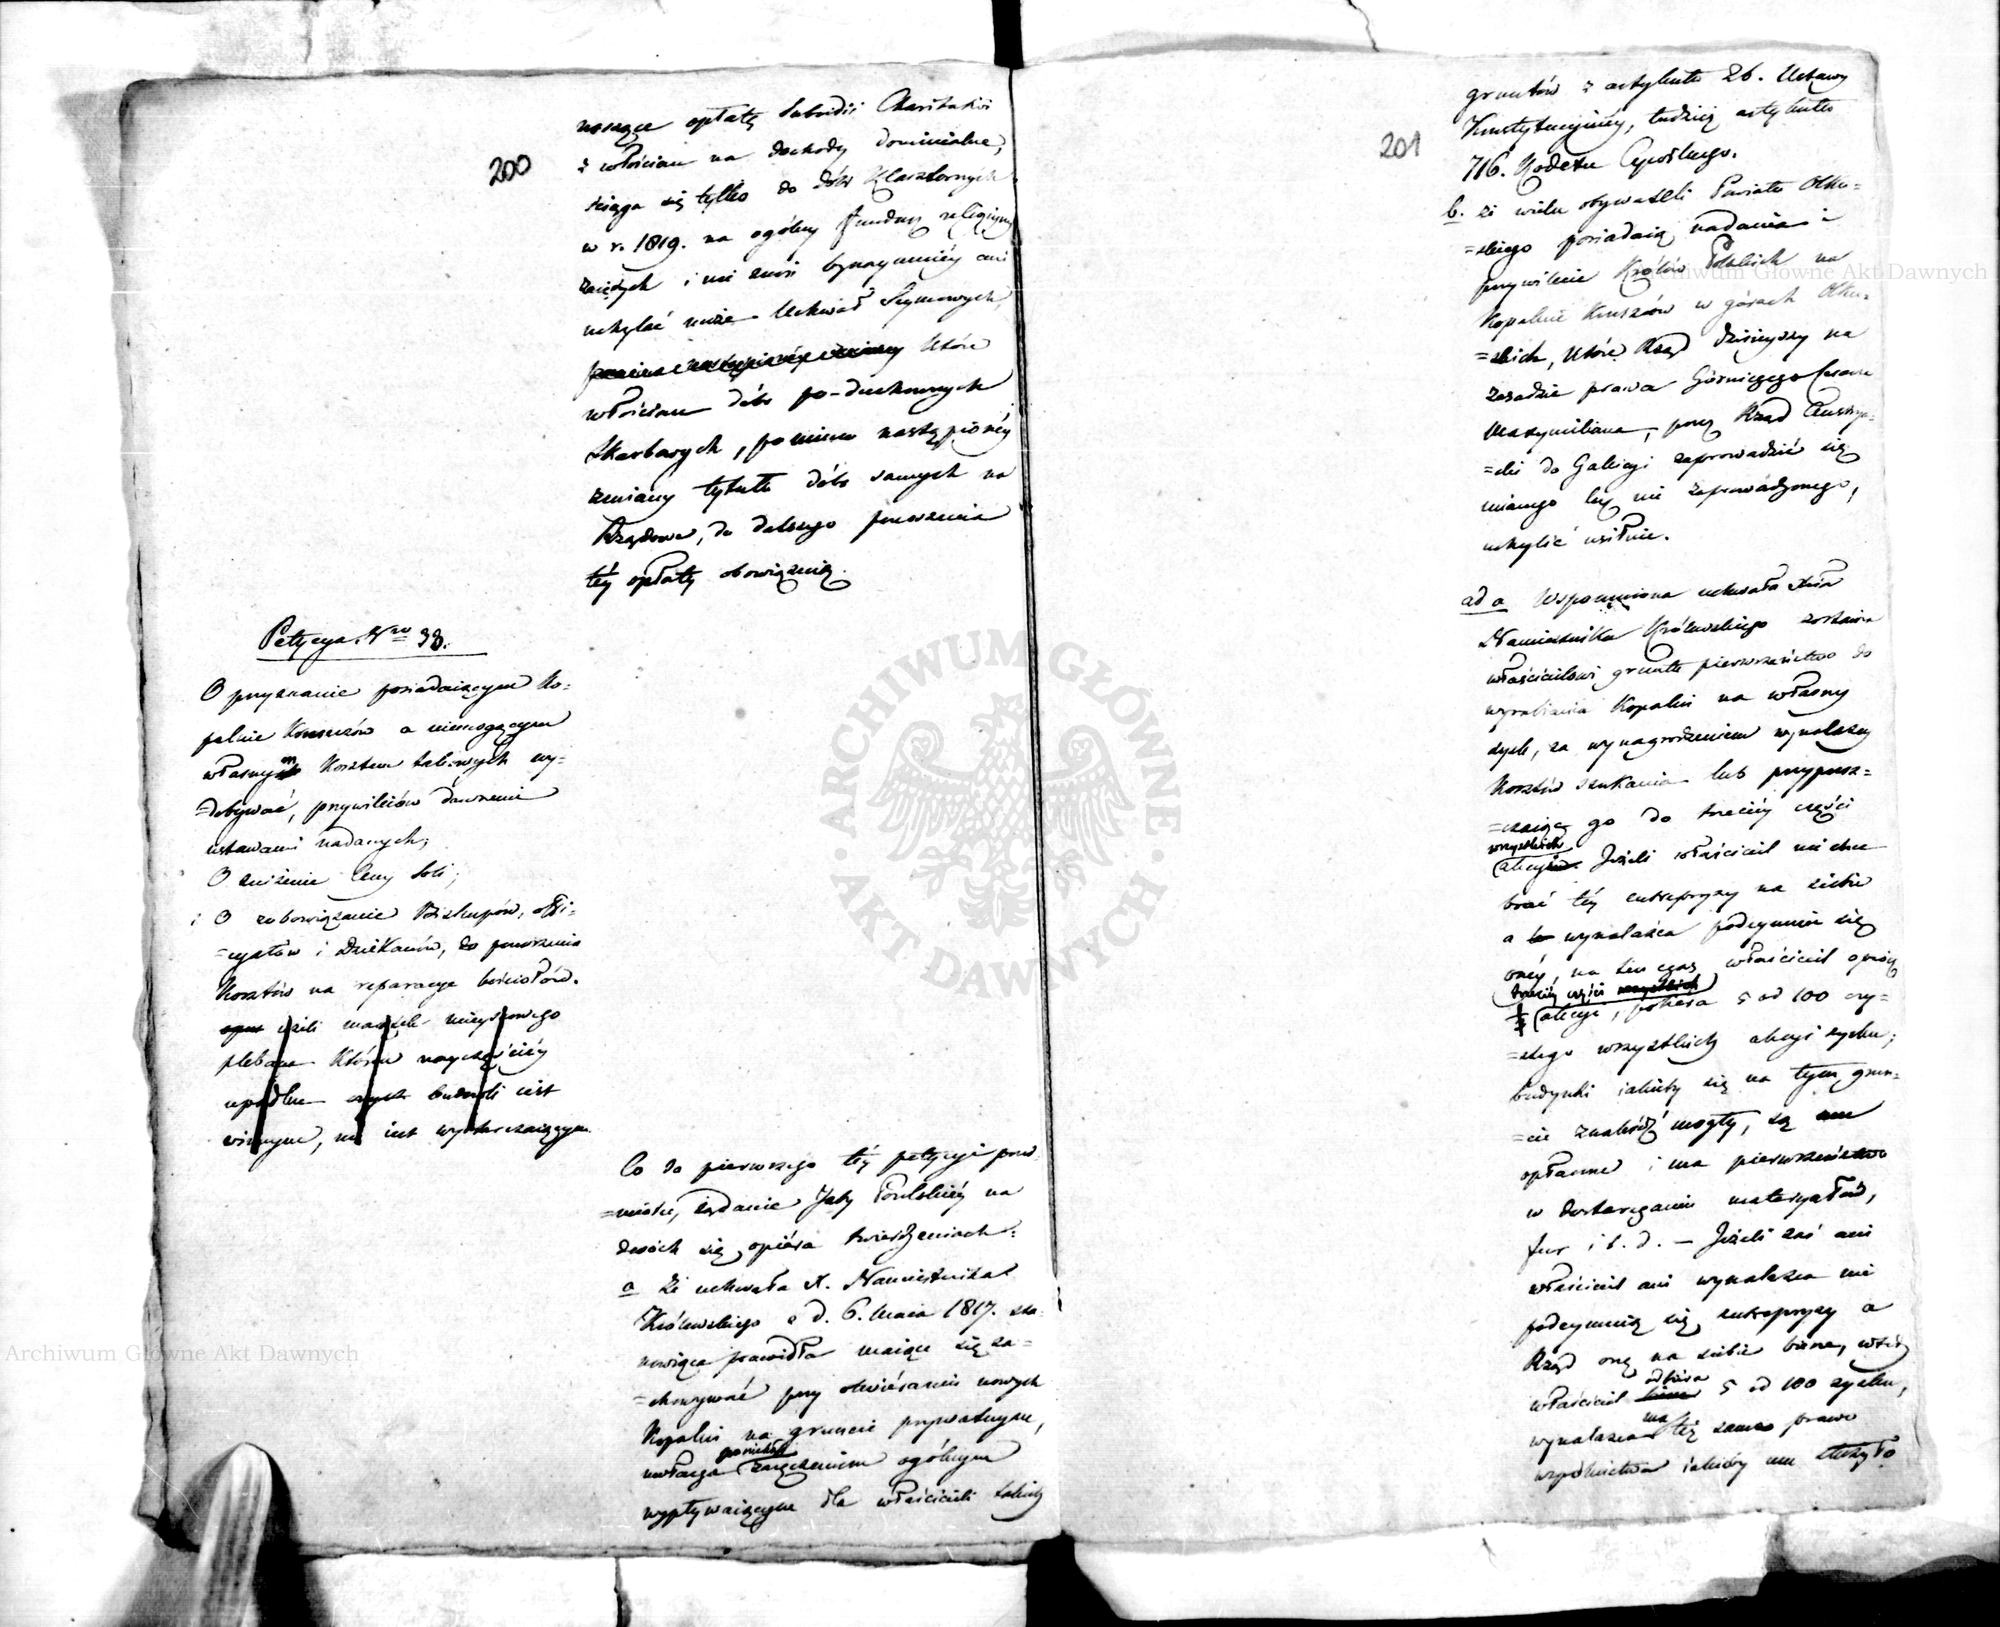 200
noszące opłatę Subsidii Charitativi
z włościan na dochody dominialne,
ściąga się tylko do dóbr Klasztornych
w r. 1819. na ogólny fundusz religijny
zajętych i nie znosi bynaymniéy ani
uchylać może Uchwał Seymowych,
które
włościan dóbr po-duchownych
Skarbowych, pomimo nastąpionéy
zmiany tytułu dóbr samych na
Rządowe, do dalszego ponoszenia
téy opłaty obowiązuią.
Petycya Nro 38.
O przyznanie posiadaiącym Ko-
palnie Kruszców a niemogącym
własnym kosztem takowych wy-
=dobywać, przywileiów dawnemi
ustawami nadanych;
O zniżenie Ceny Soli;
i O zobowiązanie Biskupów, offi-
=cyałów i Dziekanów, do ponoszenia
kosztów na reparacye kościołów.
ieżeli maiątek mieyscowego
plebana który naycześciéy
upadku onych budowli iest
winnym, nie iest wystarczaiącym.
Co do pierwszego téy petycyi przed-
=miotu, żądanie Izby Poselskiéy na
dwóch się opiéra twierdzeniach:
a że uchwała X. Namiestnika
Królewskiego z d. 6. Maia 1817. sta-
nowiąca prawidła maiące się za-
=chowywać przy otwiéraniu nowych
Kopalni na gruncie prywatnym,
poniekąd
uwłacza zaręczeniom ogólnym
wypływaiącym dla właścicieli takich
201
gruntów z artykułu 26. Ustawy
Konstytucyjnéy, tudzież artykułu
716. Kodexu Cywilnego.
b. że wielu obywateli Powiatu Olku-
=skiego posiadaią nadania i
przywileie Królów Polskich na
Kopalnie Kruszców w górach Olku-
=skich, które Rząd dzisieyszy na
zasadzie prawa Górniczego Cesarza
Maxymiliana, przez Rząd Austrya-
=cki do Galicyi zaprowadzić się
mianego lecz nie zaprowadzonego,
uchylić usiłuie.
ad a Wspomniona uchwała Xcia
Namiestnika Królewskiego zostawia
właścicielowi gruntu pierwszeństwo do
wyrabiania Kopalni na własny
zysk, za wynagrodzeniem wynalazcy
kosztów szukania lub przypusz-
=czaiąc go do trzeciéy części
wszystkich
akcyi. Jeżeli właściciel nie chce
brać téy entrepryzy na siebie
a wynalazca podeymuie się
onéy, na ten czas właściciel oprócz
trzeciéy części wszystkich
akcyi, pobiera 5 od 100 czy-
=stego wszystkich akcyi zysku;
budynki iakieby się na tym grun-
=cie znaleźdź mogły, są mu
opłacone i ma pierwszeństwo
w dostarczaniu materyałów,
fur i t. d. — Jeżeli zaś ani
właściciel ani wynalazca nie
podeymuią się entrepryzy a
Rząd onę na siebie bierze, wtedy
odbiera
właściciel 5 od 100 zysku,
ma
wynalazca też samo prawo
wspólnictwa iakieby mu służyło